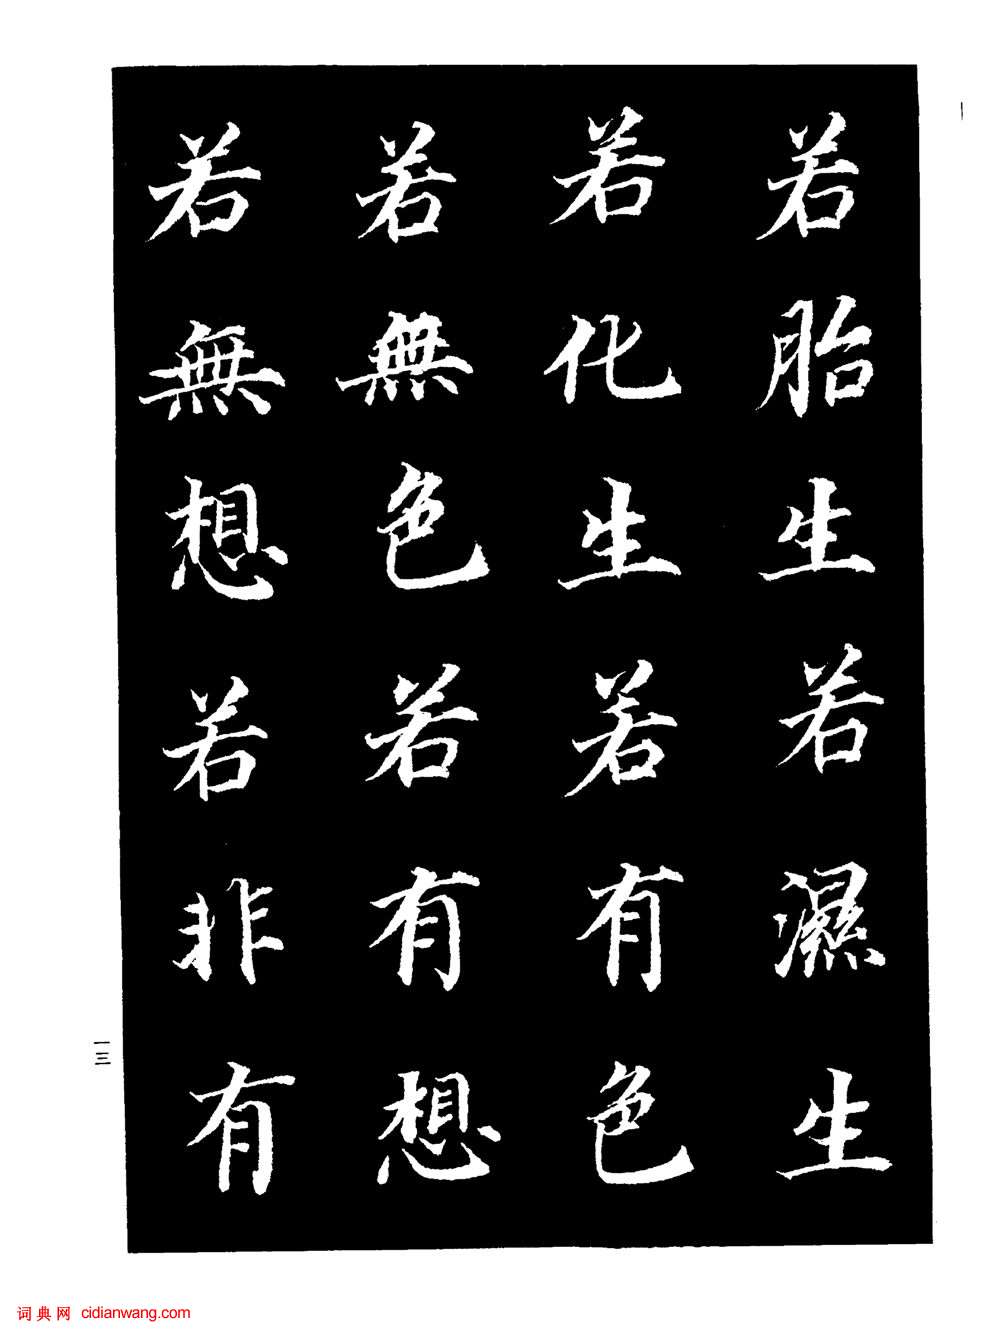 若胎生若濕生
若化生若有色
若無色若有想
若無想若非有
一三
词典网 cidianwang.com